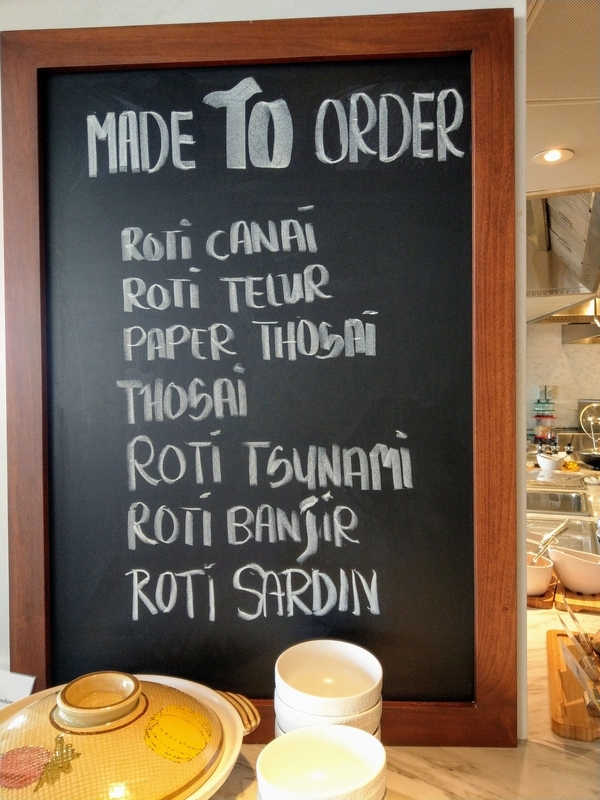 MADE TO ORDER
ROTI CANAI
ROTI TELUR
PAPER THOSAI
THOSAI
ROTI TSUNAMI
ROTI BANJIR
ROTI SARDIN